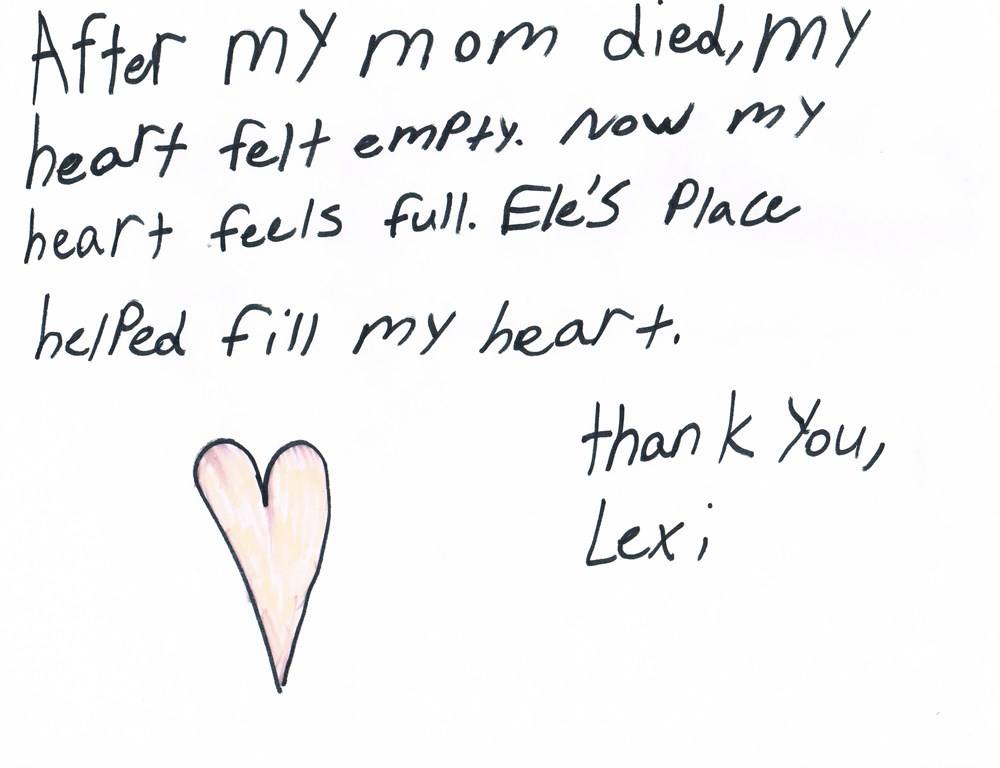 After my mom died, my
heart felt empty. Now my
heart feels full. Ele's Place
helped fill my heart.
thank You,
Lexi